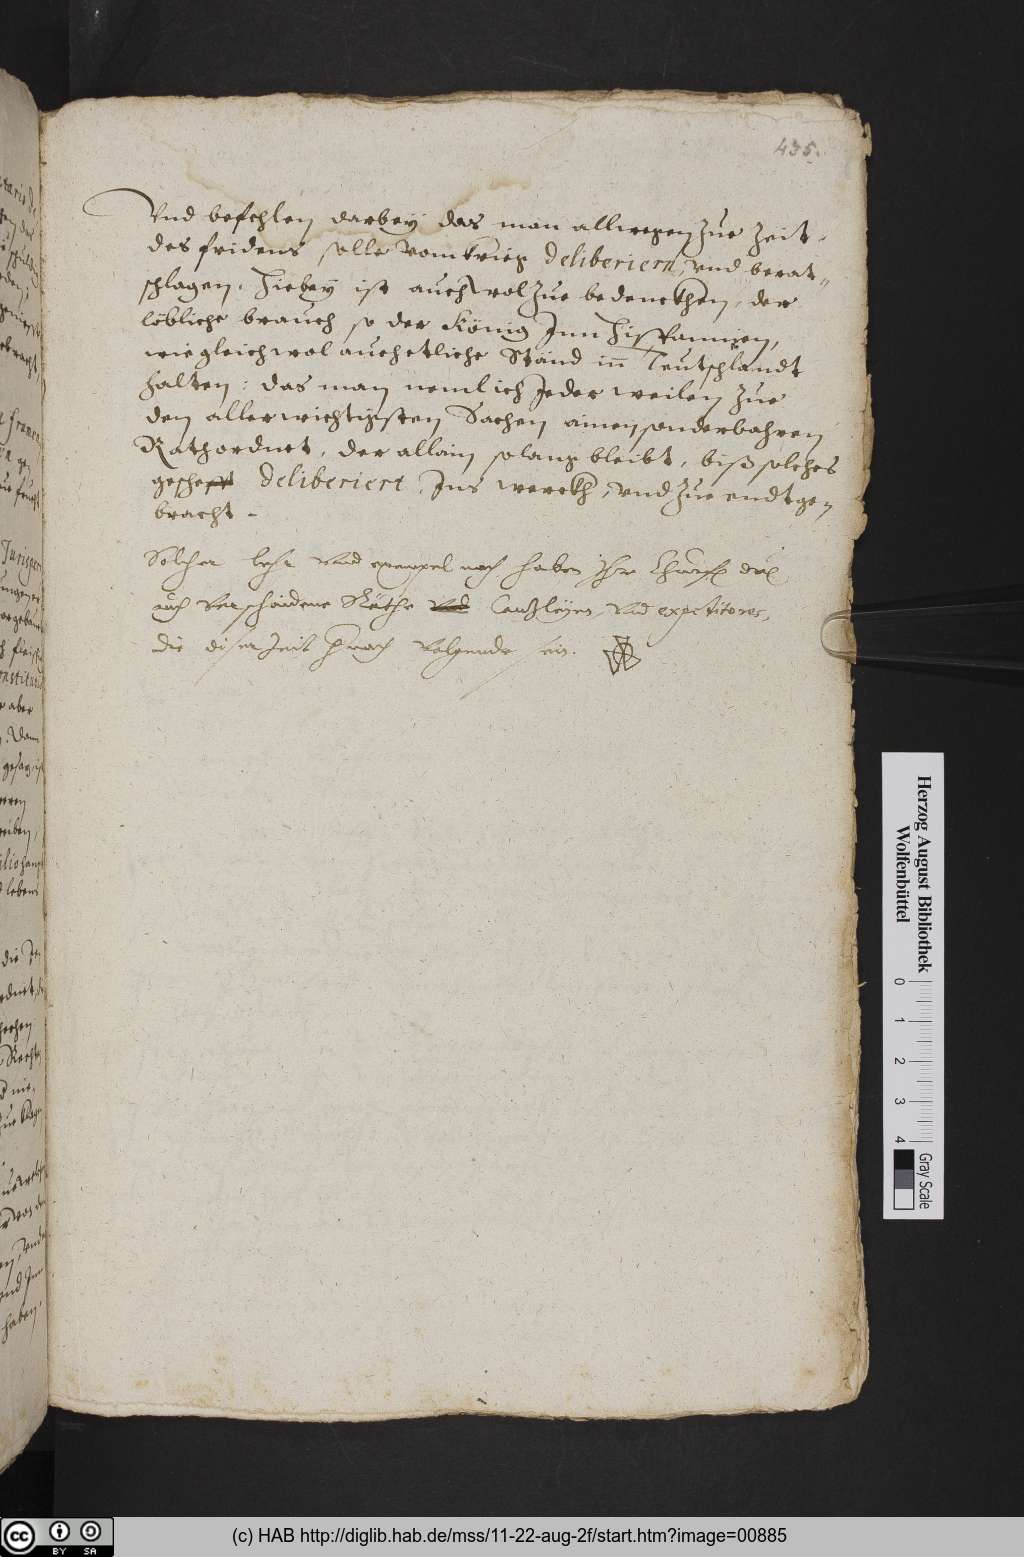 435.
Vnd befehlen darbey das man allwegen zue Zeit
des fridens solle vom krieg deliberiern, vnd berat=
schlagen. Hiebey ist auch wol zue bedenckhen, der
löbliche brauch so der König Inn Hispannien,
wie gleichwol auch etliche Ständ in Teutschlandt
halten: das man nemlich Jeder weilen zue
den aller wichtigsten Sachen ainen sonderbahren
Rath ordnet, der allain so lang bleibt, biß solches
geschefft deliberiert, Ins werckh, vnd zue endt ge
bracht -
Solcher lehr vnd exempel nach haben Ihr
auch verschaidene Räthe vnd Cantzleyen, vnd expeditores,
die diser Zeit nach volgende sein.
Herzog August Bibliothek
Wolfenbüttel
0 1 2 3 4
Gray Scale
cc BY SA
(c) HAB http://diglib.hab.de/mss/11-22-aug-2f/start.htm?image=00885